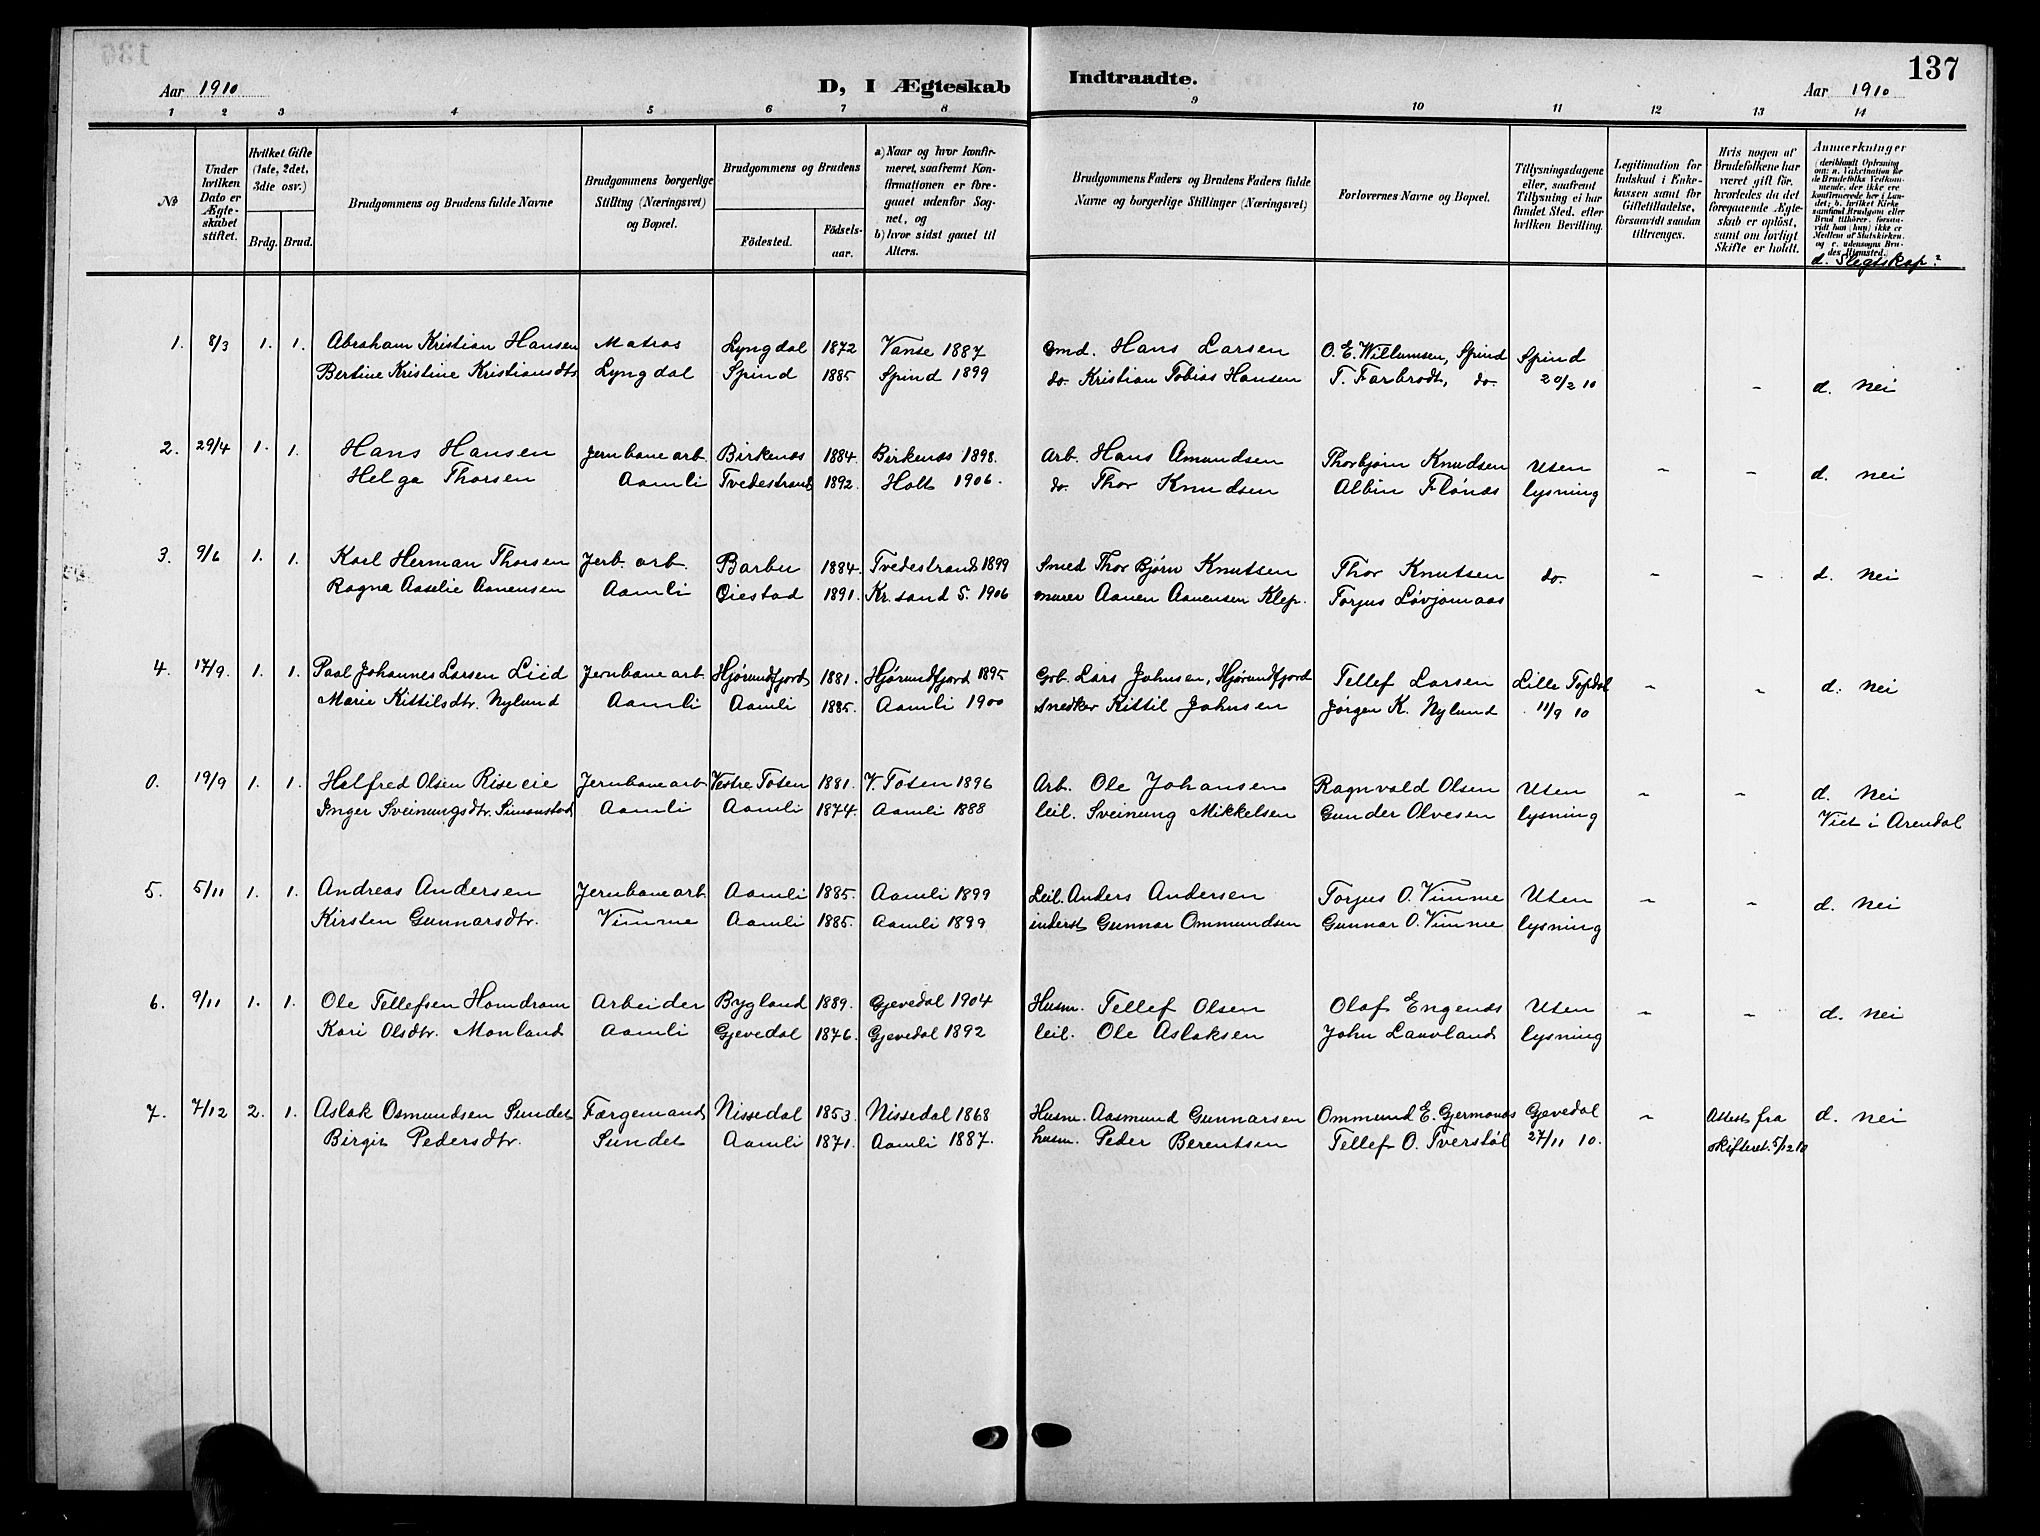 137
Aar 1910 D, I Ægteskab Indtraadte. Aar 1910
1 2 3 4 5 6 7 8 9 10 11 12 13 14
№
Under hvilken Dato er Ægteskabet stiftet.
Hvilket Gifte (1ste, 2det, 3die osv.)
Brdg. Brud.
Brudgommens og Brudens fulde Navne
Brudgommens borgerlige Stilling (Næringsvei) og Bopæl.
Brudgommens og Brudens
Födested. Födselsaar.
a) Naar og hvor konfirmeret, saafremt Konfirmationen er foregaaet udenfor Sognet, og
b) hvor sidst gaaet til Alters.
Brudgommens Faders og Brudens Faders fulde Navne og borgerlige Stillinger (Næringsvei)
Forlovernes Navne og Bopæl.
Tillysningsdagene eller, saafremt Tillysning ei har fundet Sted, efter hvilken Bevilling.
Legitimation for Indskud i Enkekassen samt for Giftetilladelse, forsaavidt saadan tiltrænges.
Hvis nogen af Brudefolkene har været gift för, hvorledes da det foregaaende Ægteskab er oplöst, samt om lovligt Skifte er holdt.
Anmærkninger
d. Slegtskap?
1. 8/3 1. 1. Abraham Kristian Hansen Matros Lyngdal 1872 Vanse 1887 Gmd. Hans Larsen O. E. Willumsen, Spind Spind
Bertine Kristine Kristiansdtr Lyngdal Spind 1885 Spind 1899 do. Kristian Tobias Hansen T. Farbrodt, do. 20/2 10 - d. Nei
2. 29/4 1. 1. Hans Hansen Jernbanearb. Birkenæs 1884. Birkenæs 1898. Arb. Hans Amundsen Thorbjørn Knudsen Uten
Helga Thorsen Aamli Tvedestrand 1892. Holt 1906. do. Thor Knudsen Albin Flönæs lysning - - d. Nei
3. 9/6 1. 1. Karl Herman Thorsen Jerb. arb. Barbu 1884. Tvedestrand 1899 Smed Thor Bjørn Knutsen Thor Knutsen do. - - d. Nei
Ragna Aaselie Aanensen Aamli Øiestad 1891. Kr.sand S. 1906 murer Aanen Aanensen Klep. Torjus Løvjomaas
4. 17/9. 1. 1. Paal Johannes Larsen Liid Jernbanearb. Hjørundfjord 1881. Hjørundfjord 1895 Grb. Lars Johnsen, Hjørundfjord Tellef Larsen Lille Topdal - - d. Nei
Marie Kittilsdtr. Nylund Aamli Aamli 1885. Aamli 1900 Snedker Kittil Johnsen Jørgen K. Nylund 11/9 10
0. 19/9 1. 1. Halfred Olsen Riseeie Jernbanearb Vestre Toten 1881. V. Toten 1896 Arb. Ole Johansen Ragnvald Olsen Uten - - d. Nei
Inger Sveinungsdtr. Simonstad Aamli Aamli 1874. Aamli 1888 leil. Sveinung Mikkelsen Gunder Olvesen lysning Viet i Arendal
5. 5/11 1. 1. Andreas Andersen Jernbanearb. Aamli 1885. Aamli 1899 Leil. Anders Andersen Torjus O. Vimme Uten - - d. Nei
Kirsten Gunnarsdtr. Vimme Aamli 1885. Aamli 1899 inderst Gunnar Ommundsen Gunnar O. Vimme lysning
6. 9/11 1. 1. Ole Tellefsen Homdrom Arbeider Bygland 1889. Gjevedal 1904 Husm. Tellef Olsen Olaf Engenes Uten - - d. Nei
Kari Olsdtr. Monland Aamli Gjevedal 1876. Gjevedal 1892 leil. Ole Aslaksen John Lauvland lysning
7. 7/12 2. 1. Aslak Osmundsen Sundet Færgemand Nissedal 1853. Nissedal 1868 Husm. Aasmund Gunnarsen Ommund E. Gjermonæs Gjevedal - Attest fra d. Nei
Birgit Pedersdtr. Sundet Aamli 1871. Aamli 1887. husm. Peder Berentsen Tellef O. Tverstøl 27/11 10. Skifteret. 5/12 10